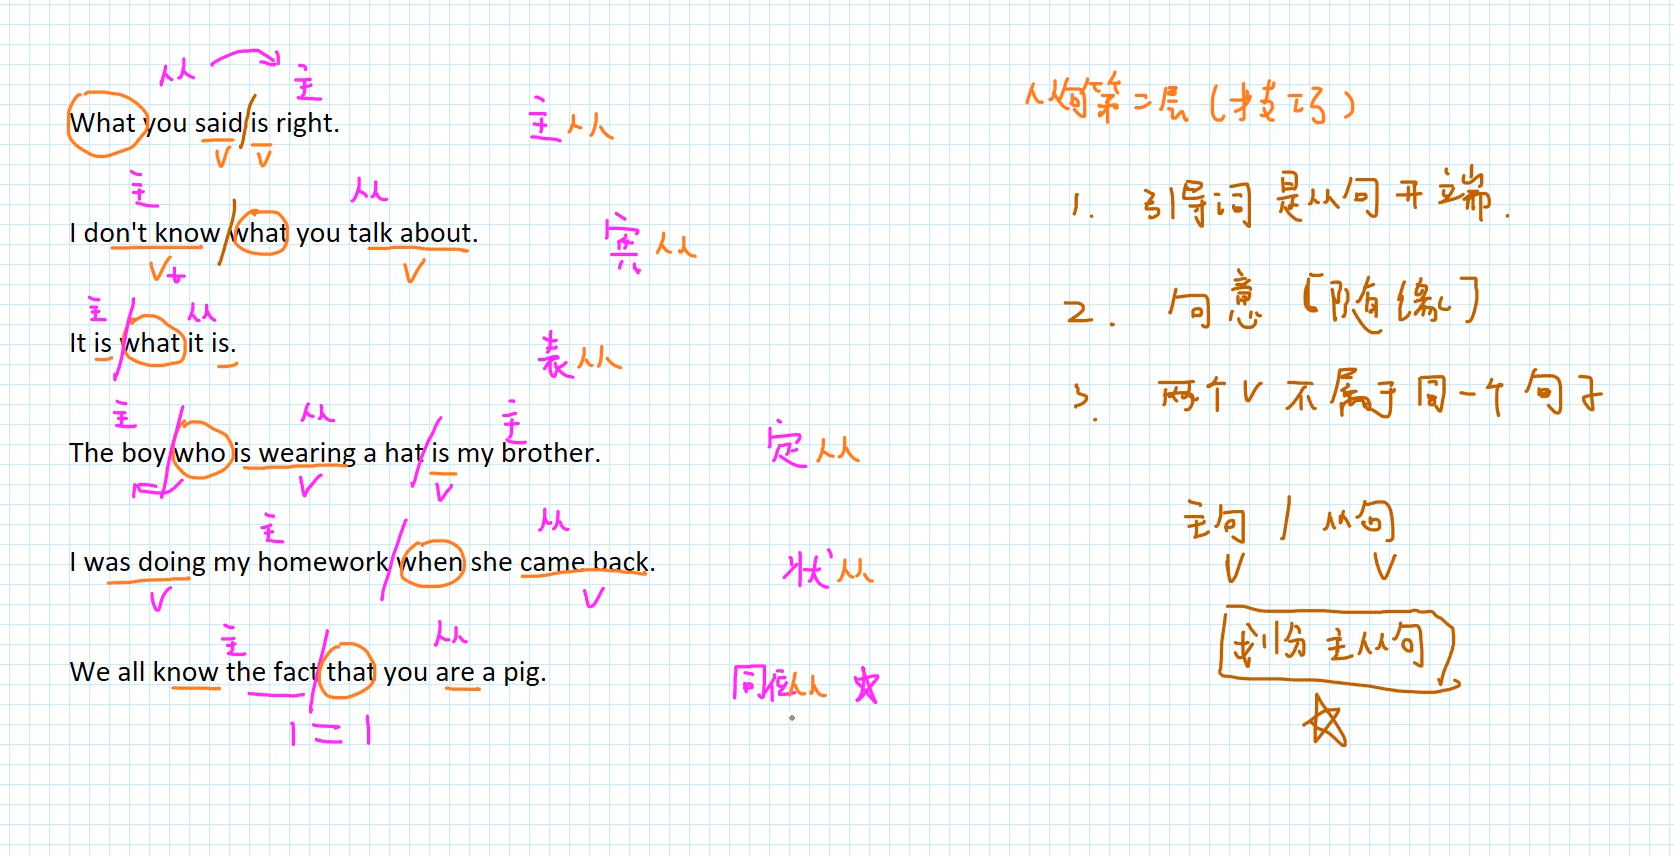 从 主
What you said is right. 主从
V V
主 从
I don't know what you talk about. 宾从
V V
主 从
It is what it is. 表从
主 从 主
The boy who is wearing a hat is my brother. 定从
V V
主 从
I was doing my homework when she came back. 状从
V V
主 从
We all know the fact that you are a pig. 同位从
1 = 1
从句第二层(技巧)
1. 引导词是从句开端.
2. 句意 [随缘]
3. 两个V不属于同一个句子
主句 / 从句
V V
划分主从句